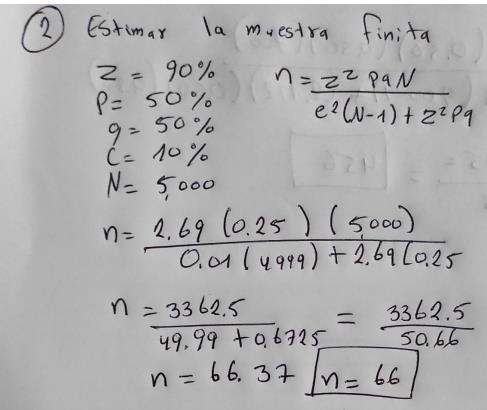 2 Estimar la muestra finita
Z = 90%
P= 50%
q= 50%
C= 10%
N= 5,000
n = z² pqN / e²(N-1) + z² pq
n= 2.69 (0.25) (5,000) / 0.01 (4999) + 2.69 (0.25
n = 3362.5 / 49.99 + 0.6725 = 3362.5 / 50.66
n = 66.37 n= 66